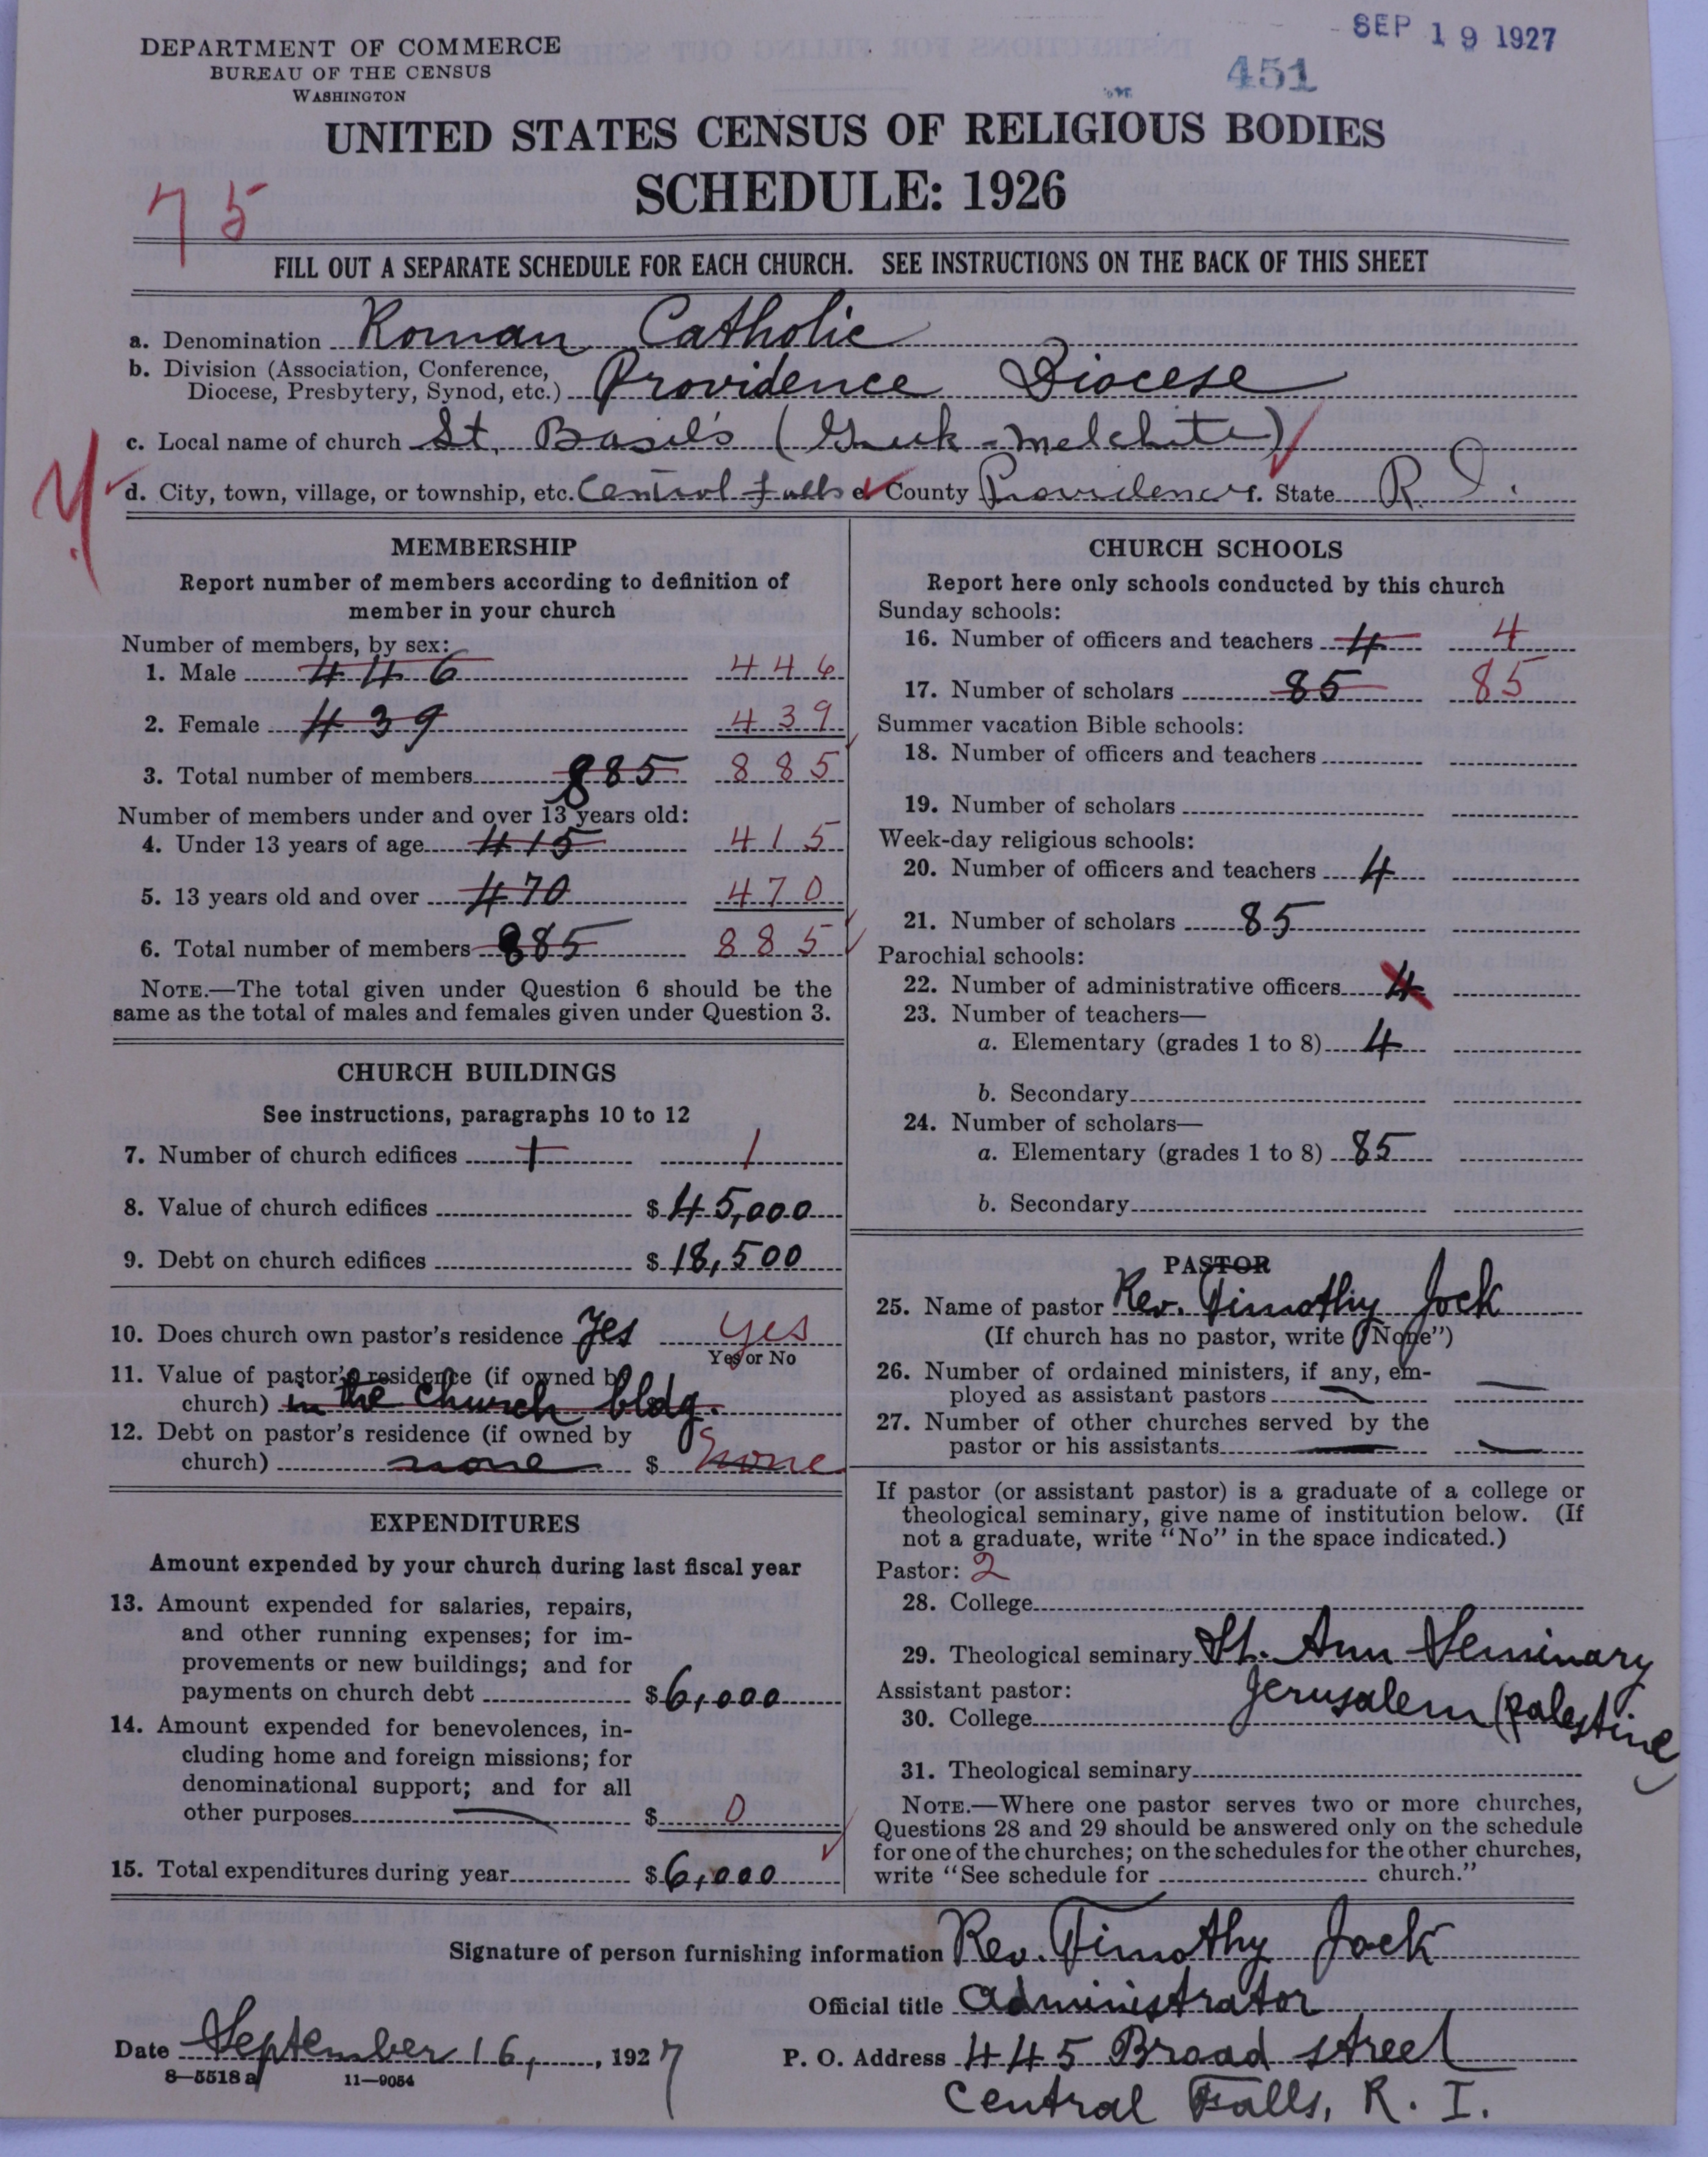 SEP 19 1927
451
DEPARTMENT OF COMMERCE
BUREAU OF THE CENSUS
WASHINGTON
UNITED STATES CENSUS OF RELIGIOUS BODIES
SCHEDULE: 1926
75
FILL OUT A SEPARATE SCHEDULE FOR EACH CHURCH. SEE INSTRUCTIONS ON THE BACK OF THIS SHEET
a. Denomination Roman Catholic
b. Division (Association, Conference,
Diocese, Presbytery, Synod, etc.) Providence Diocese
c. Local name of church St. Basil's (Greek-Melchite)
d. City, town, village, or township, etc. Central Falls e. County Providence f. State R. I.
MEMBERSHIP
Report number of members according to definition of
member in your church
Number of members, by sex:
1. Male 446 446
2. Female 439 439
3. Total number of members 885 885
Number of members under and over 13 years old:
4. Under 13 years of age 415 415
5. 13 years old and over 470 470
6. Total number of members 885 885
NOTE.—The total given under Question 6 should be the
same as the total of males and females given under Question 3.
CHURCH BUILDINGS
See instructions, paragraphs 10 to 12
7. Number of church edifices 1 1
8. Value of church edifices $ 45,000
9. Debt on church edifices $ 18,500
10. Does church own pastor's residence Yes yes
Yes or No
11. Value of pastor's residence (if owned by
church) in the church bldg.
12. Debt on pastor's residence (if owned by
church) none $ none
EXPENDITURES
Amount expended by your church during last fiscal year
13. Amount expended for salaries, repairs,
and other running expenses; for im-
provements or new buildings; and for
payments on church debt $ 6,000
14. Amount expended for benevolences, in-
cluding home and foreign missions; for
denominational support; and for all
other purposes $ 0
15. Total expenditures during year $ 6,000
CHURCH SCHOOLS
Report here only schools conducted by this church
Sunday schools:
16. Number of officers and teachers 4 4
17. Number of scholars 85 85
Summer vacation Bible schools:
18. Number of officers and teachers
19. Number of scholars
Week-day religious schools:
20. Number of officers and teachers 4
21. Number of scholars 85
Parochial schools:
22. Number of administrative officers 4
23. Number of teachers—
a. Elementary (grades 1 to 8) 4
b. Secondary
24. Number of scholars—
a. Elementary (grades 1 to 8) 85
b. Secondary
PASTOR
25. Name of pastor Rev. Timothy Jock
(If church has no pastor, write "None")
26. Number of ordained ministers, if any, em-
ployed as assistant pastors
27. Number of other churches served by the
pastor or his assistants
If pastor (or assistant pastor) is a graduate of a college or
theological seminary, give name of institution below. (If
not a graduate, write "No" in the space indicated.)
Pastor: 2
28. College
29. Theological seminary St. Ann Seminary
Jerusalem (Palestine)
Assistant pastor:
30. College
31. Theological seminary
NOTE.—Where one pastor serves two or more churches,
Questions 28 and 29 should be answered only on the schedule
for one of the churches; on the schedules for the other churches,
write "See schedule for church."
Signature of person furnishing information Rev. Timothy Jock
Official title Administrator
Date September 16, 1927
P. O. Address 445 Broad street
Central Falls, R. I.
8—5518 a 11—9054